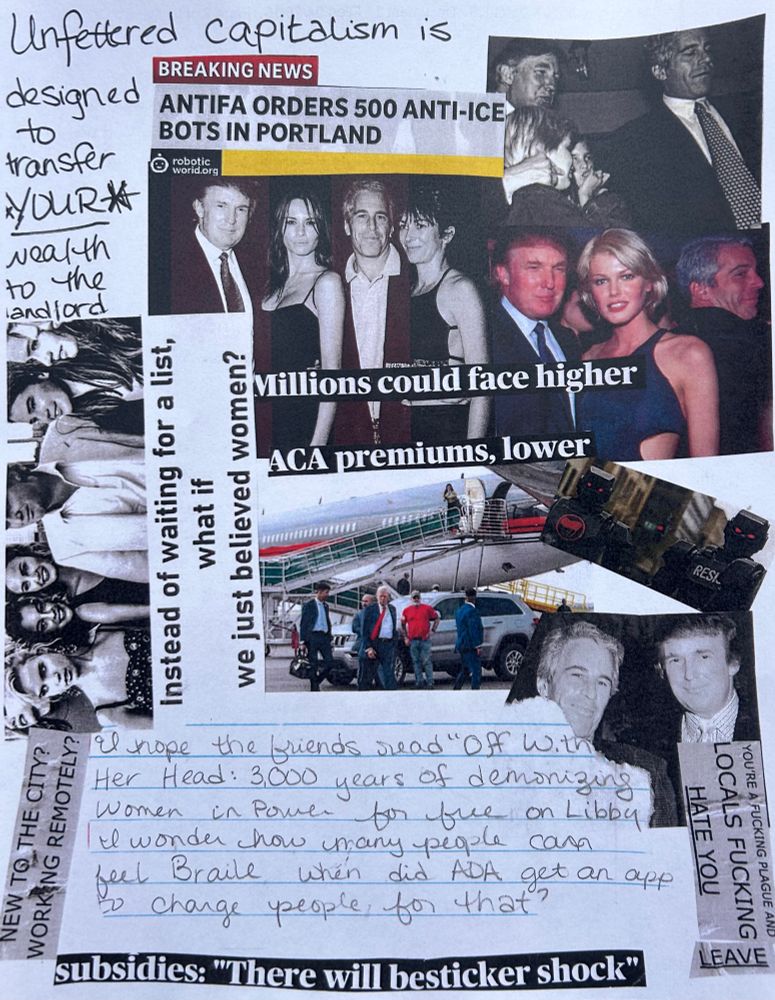 Unfettered capitalism is
designed
to
transfer
*YOUR*
wealth
to the
landlord
BREAKING NEWS
ANTIFA ORDERS 500 ANTI-ICE
BOTS IN PORTLAND
robotic
world.org
Instead of waiting for a list,
what if
we just believed women?
Millions could face higher
ACA premiums, lower
RESI
I hope the friends read "Off With
Her Head: 3,000 years of demonizing
Women in Power for free on Libby
I wonder how many people can
feel Braile when did ADA get an app
to charge people for that?
NEW TO THE CITY?
WORKING REMOTELY?
YOU'RE A FUCKING PLAGUE AND
LOCALS FUCKING
HATE YOU
LEAVE
subsidies: "There will besticker shock"